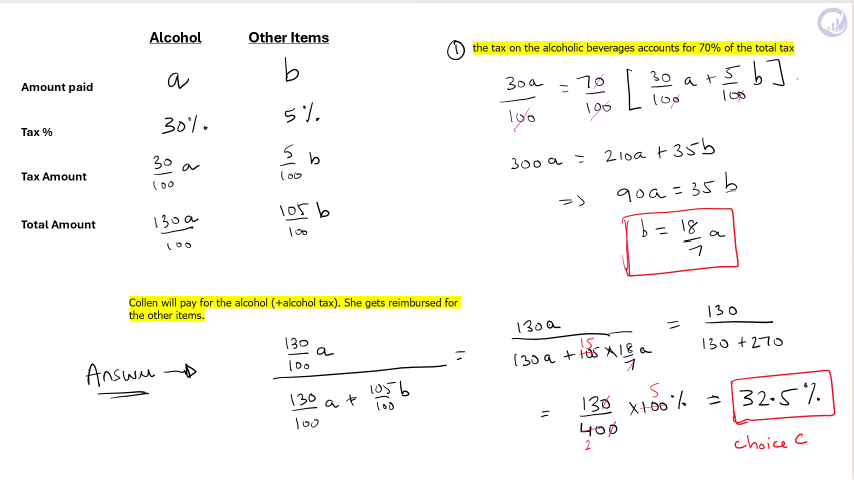 Alcohol Other Items
Amount paid a b
Tax % 30%. 5%.
Tax Amount 30/100 a 5/100 b
Total Amount 130a/100 105/100 b
Collen will pay for the alcohol (+alcohol tax). She gets reimbursed for
the other items.
Answer → (130/100 a) / (130/100 a + 105/100 b) = 130a / (130a + 105 15 × 18/7 a) = 130 / (130 + 270)
= 130/400 2 × 100 5 % = 32.5%
Choice C
① the tax on the alcoholic beverages accounts for 70% of the total tax
30a/100 = 70/100 [ 30/100 a + 5/100 b ]
300a = 210a + 35b
=> 90a = 35b
b = 18/7 a